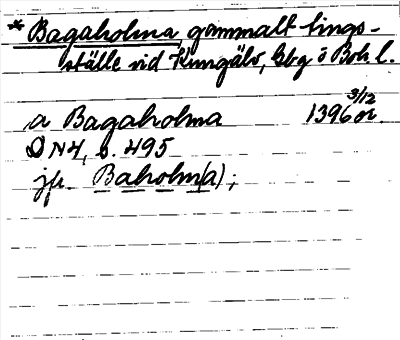 * Bagaholma, gammalt tings-
ställe vid Kungälv, Gbg o Boh l.
3/12
a Bagaholma 1396 or.
DN4, s. 495
jfr. Baholm(a);